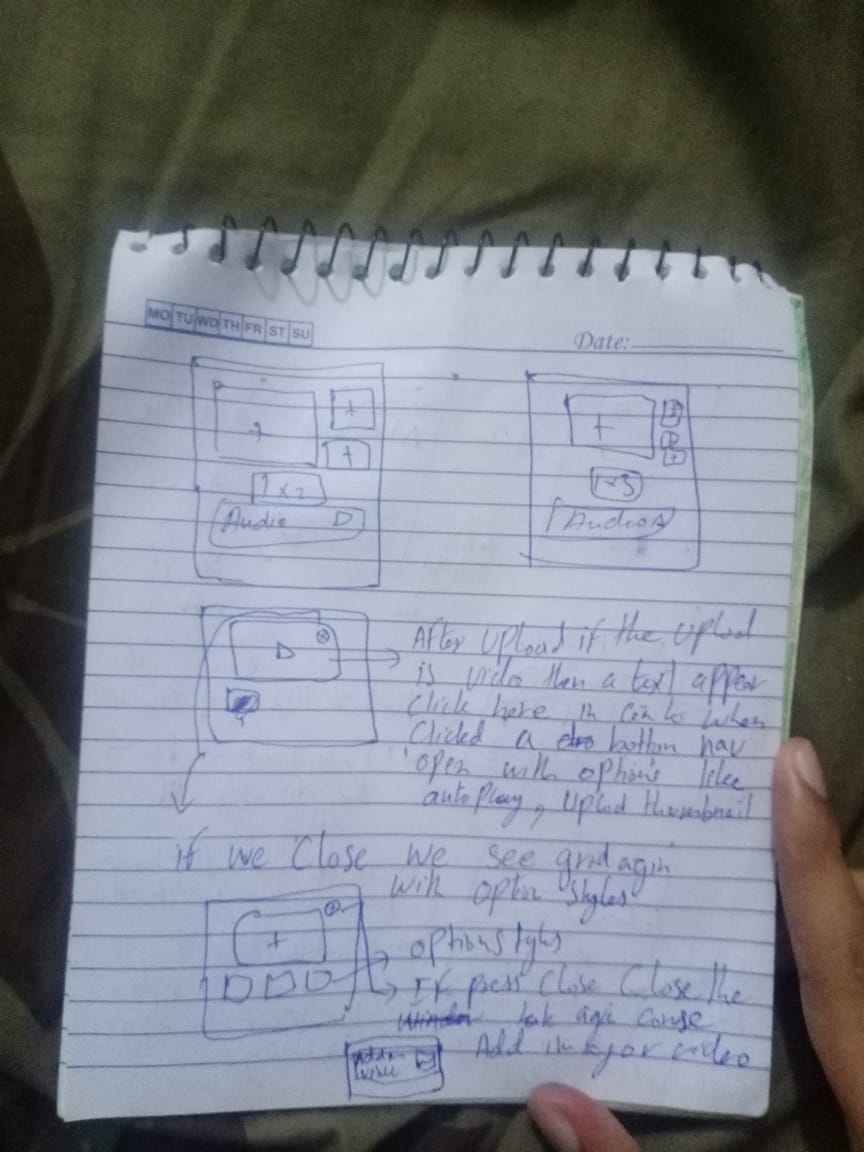 MO TU WD TH FR ST SU
Date:
+ + +
+
1 x 2
1x3
Audio
Audio
After Upload if the Uplod
is vido then a text appear
Click here in when
Clicked a botton nav
open with options like
autoplay, Uplod thumbnail
if we Close we see grid agin
with option styles
+
option styles
If press Close Close the
Add imag or video